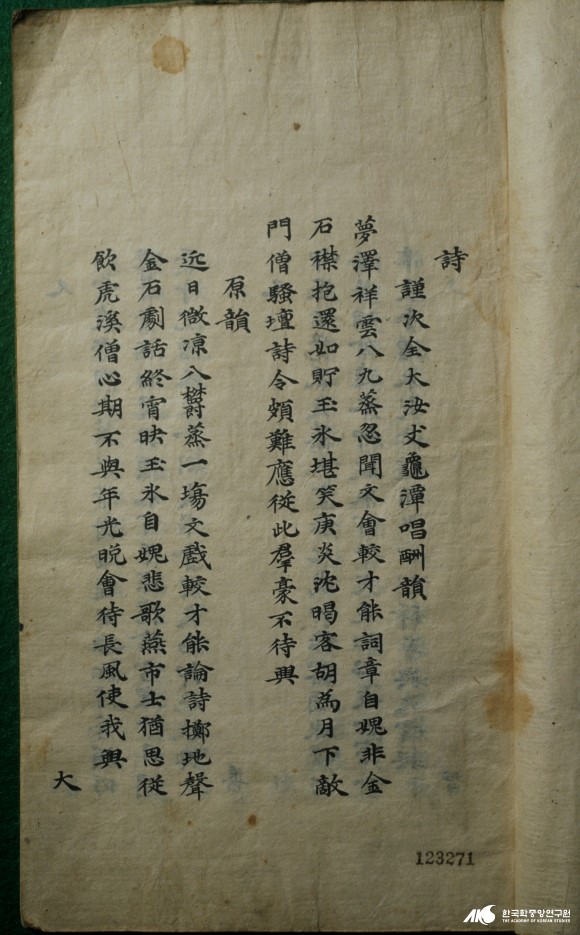 詩
謹次金大汝丈龜潭唱酬韻
夢澤祥雲八九蒸忽聞文會較才能詞章自媿非金
石襟抱還如貯玉氷堪笑庚炎沈暍客胡爲月下敲
門僧騷壇詩令頗難應從此羣豪不待興
原韻
近日微凉入欝蒸一塲文戲較才能論詩擲地聲
金石劇話終宵映玉氷自媿悲歌燕市士猶思從
飮虎溪僧心期不與年光晩會待長風使我興
大
123271
한국학중앙연구원
THE ACADEMY OF KOREAN STUDIES